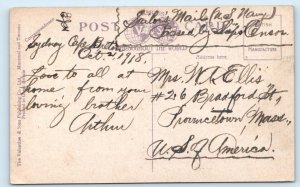 POST
Sailor's Mail (U.S. Navy)
Passed by Ship's Censor
Sydney Cape Breton
Oct. 2, 1918.
THROUGHOUT THE WORLD
Address here
Love to all at
home from your
loving brother
Arthur
Mrs. W. Ellis
#26 Bradford St,
Provincetown Mass.,
U.S. of America.
The Valentine & Sons Publishing Co., Ltd., Montreal and Toronto